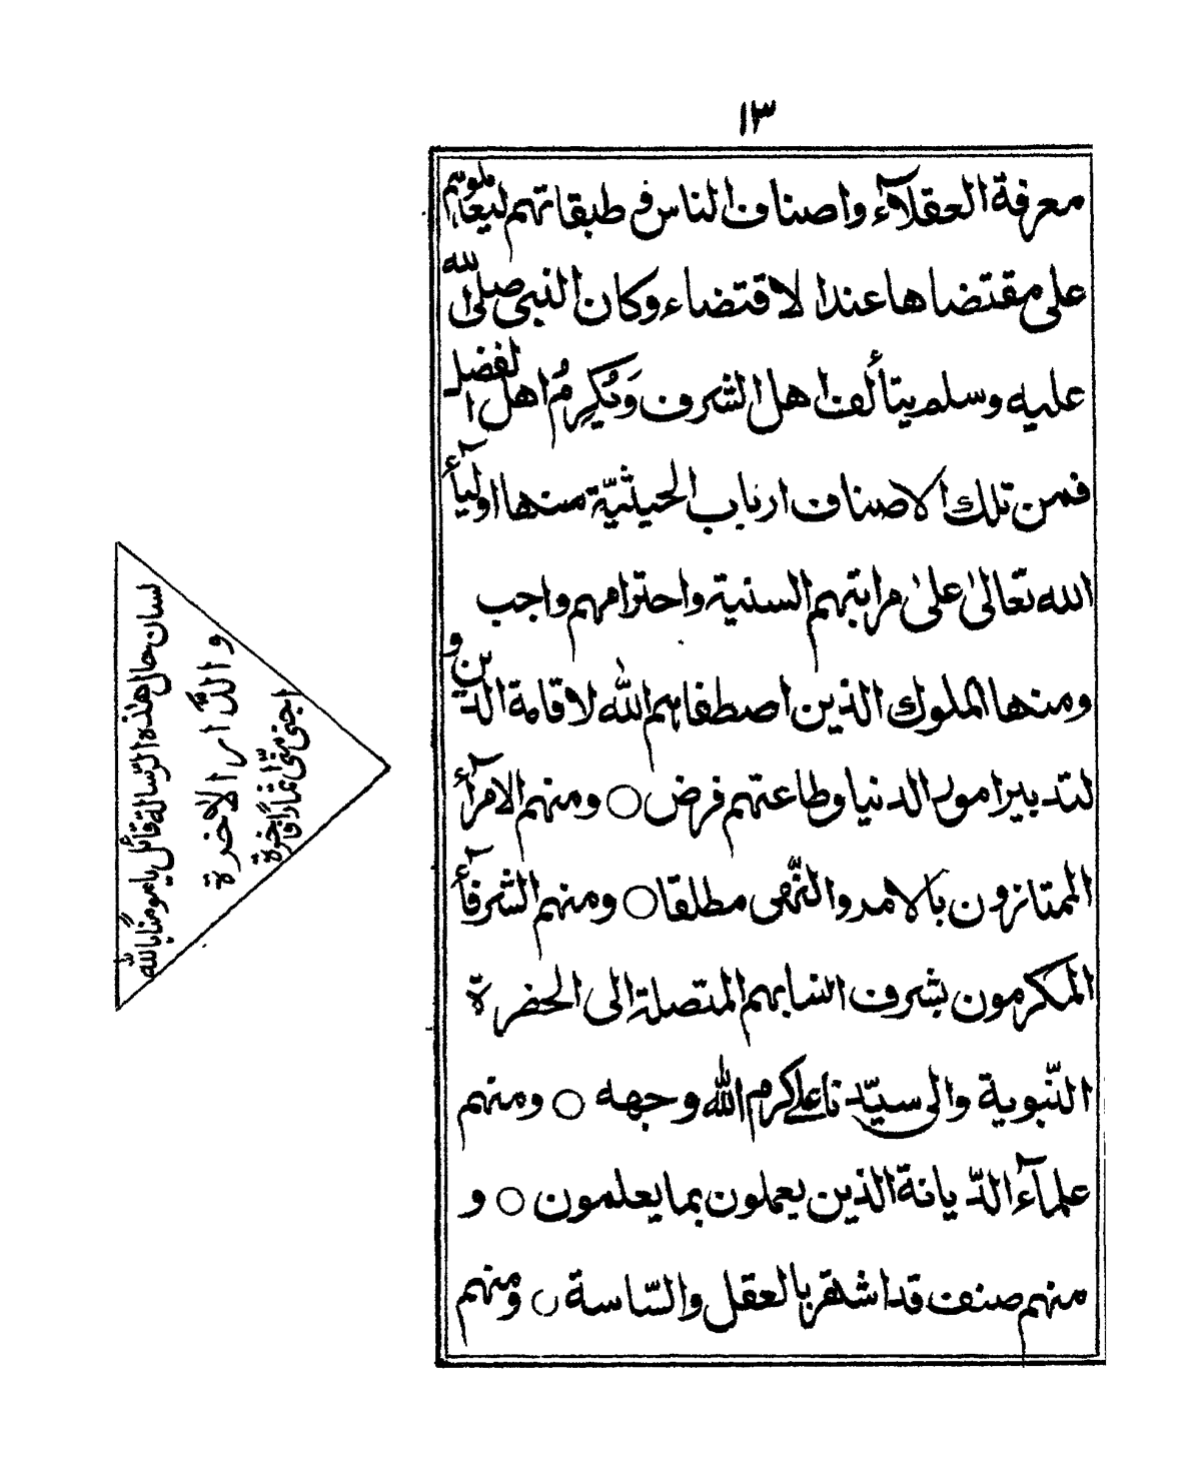 ١٣
معرفة العقلآء واصناف الناس فى طبقاتهم ليعاملوهم
على مقتضاها عند الاقتضاء وكان النبى صلى الله
عليه وسلم يتألف اهل الشرف وَيُكرِمُ اهل الفضل
فمن تلك الاصناف ارباب الحيثيّة منها اوليآء
الله تعالىٰ علىٰ مراتبهم السنية واحترامهم واجب
ومنها الملوك الذين اصطفاهم الله لاقامة الدّين و
لتدبير امور الدنيا وطاعتهم فرض ○ ومنهم الامرآء
الممتازون بالامر والنّهى مطلقا ○ ومنهم الشرفآء
المكرمون بشرف انسابهم المتصلة الى الحضرة
النّبوية والى سيّدنا على كرم الله وجهه ○ ومنهم
علمآء الدّيانة الذين يعملون بما يعلمون ○ و
منهم صنف قد اشتهر بالعقل والسّاسة ○ ومنهم
لسان حال هٰذه الرّسالة قائل يا مومنًا بالله
والدَّار الاٰخرة
اجتنى منّى ثمارًا فاخرة